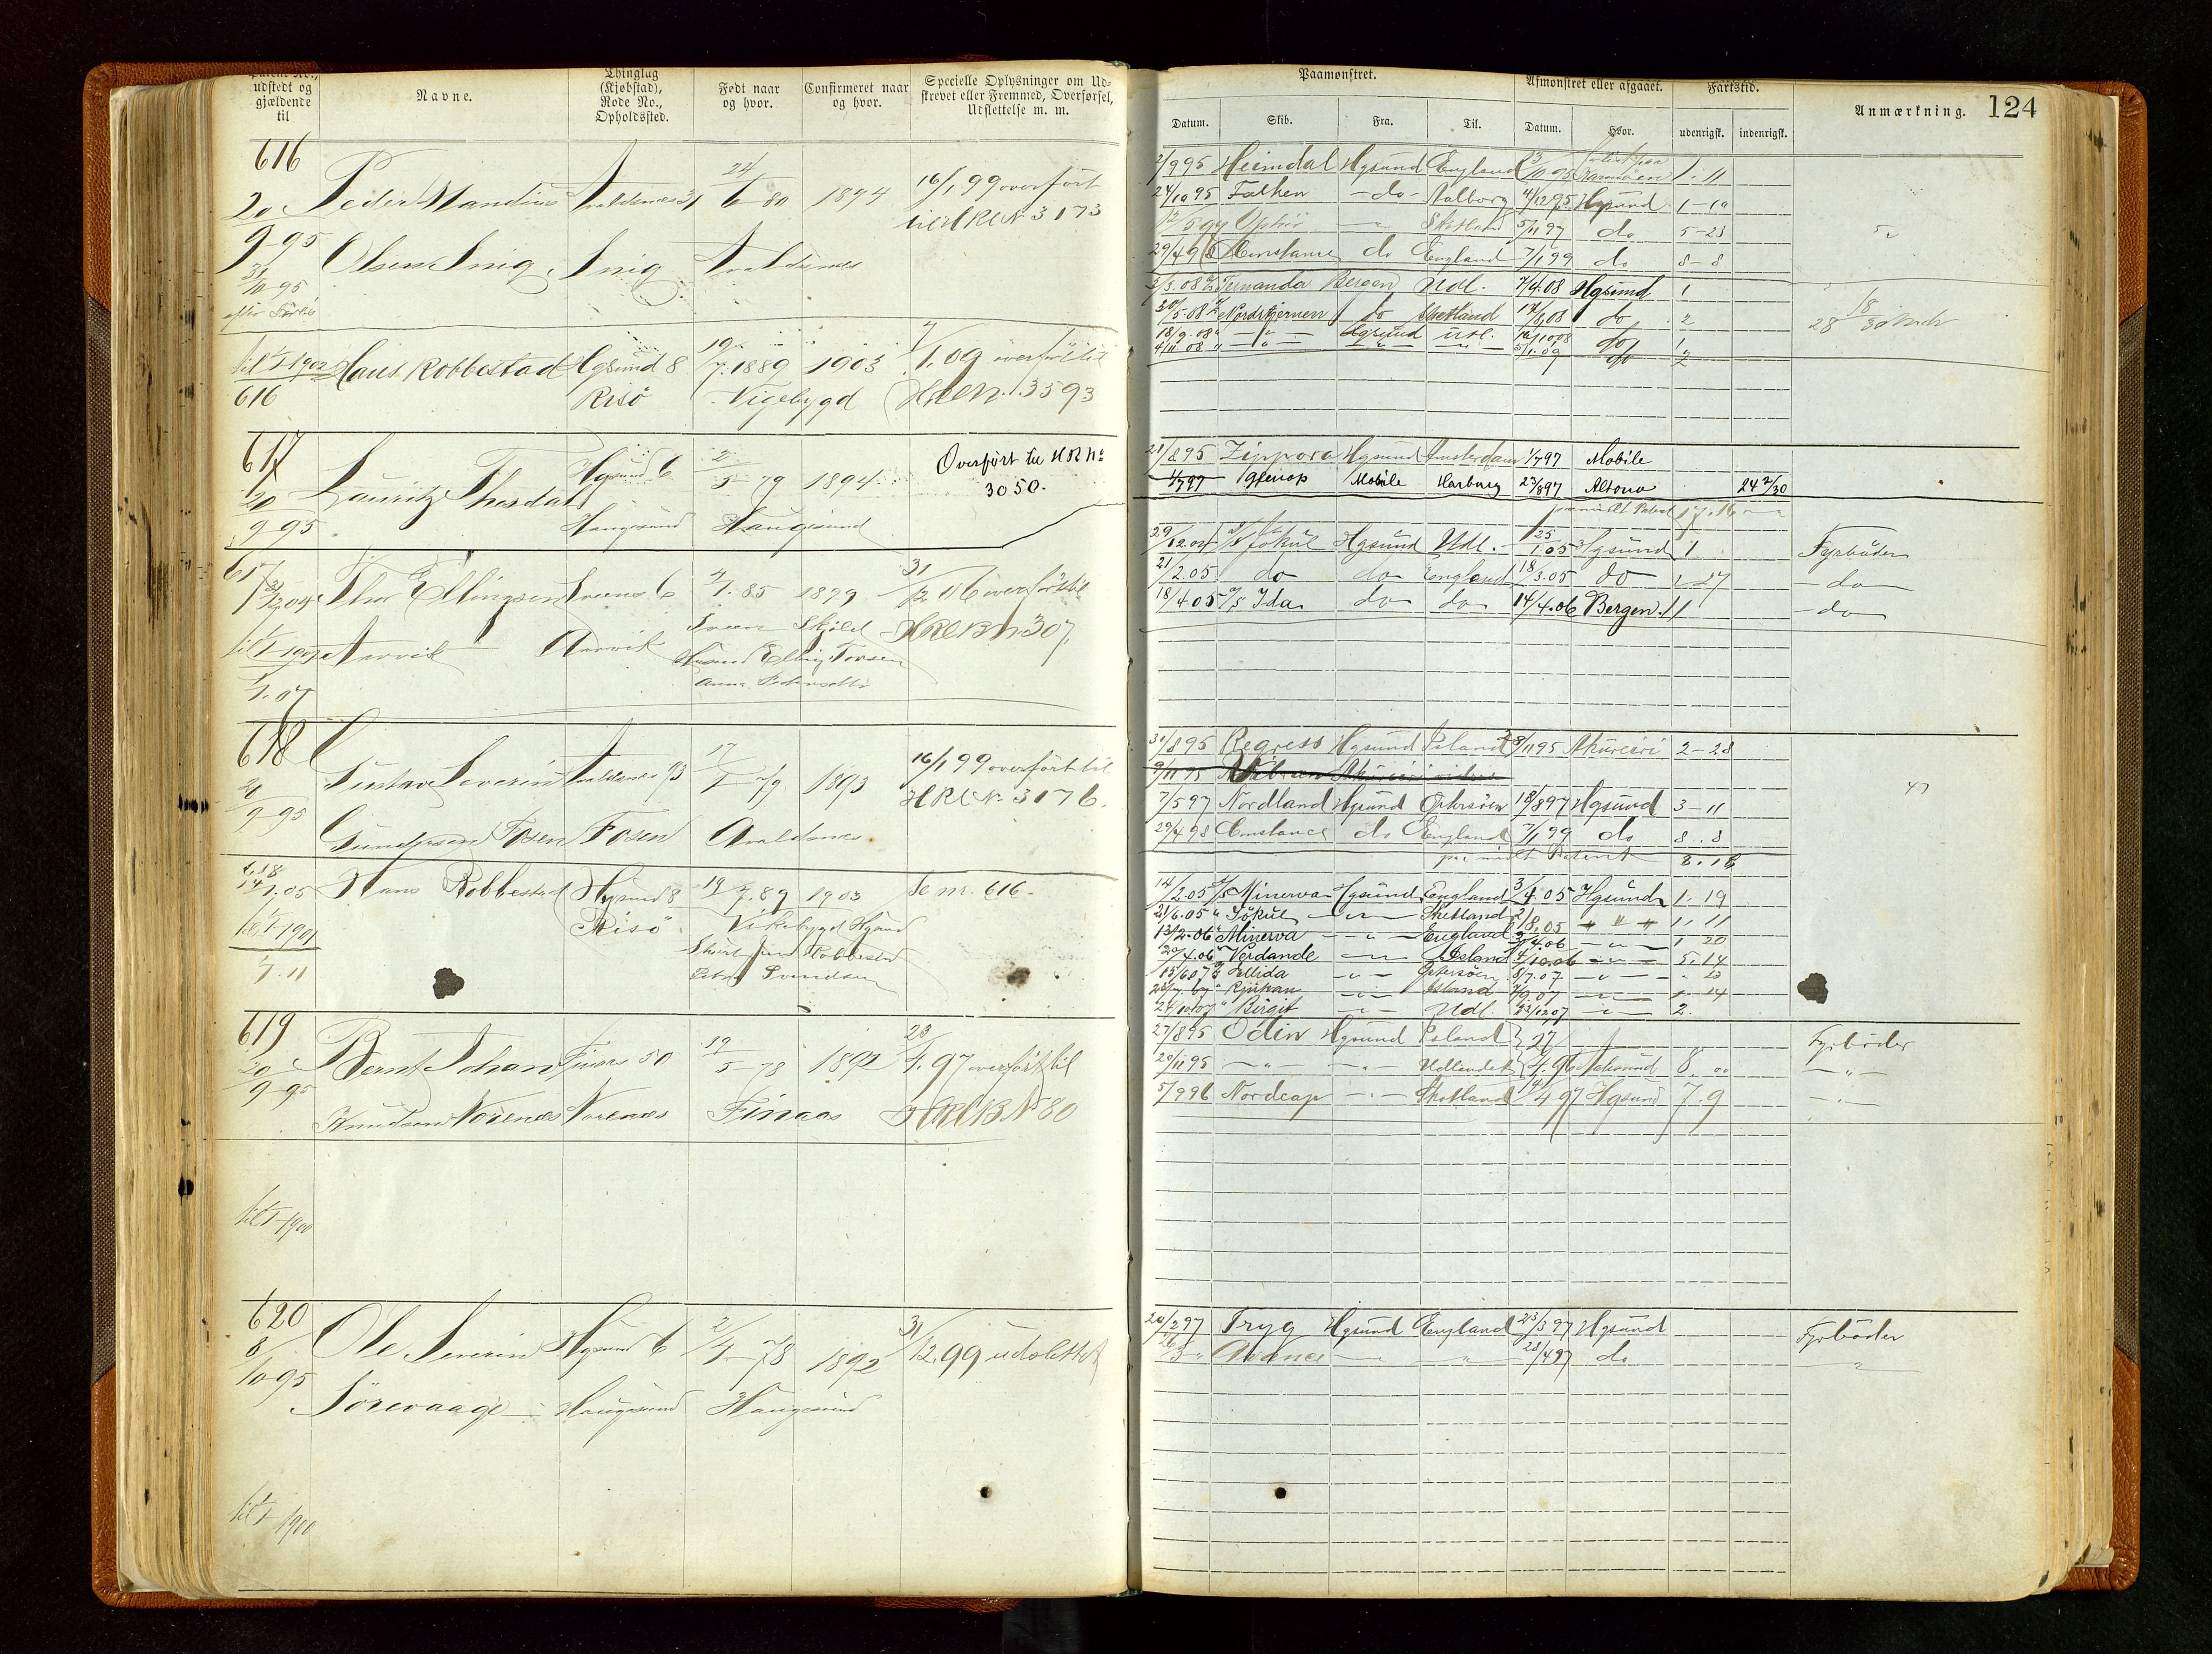 udstedt og
gjældende
til
Navne.
Thinglag
(Kjøbstad),
Rode No.,
Opholdssted.
Født naar
og hvor.
Confirmeret naar
og hvor.
Specielle Oplysninger om Ud-
skrevet eller Fremmed, Overførsel,
Udslettelse m. m.
616
20
9-95
31/10-95
Peder Mandius
Avaldsnes 31
24/6-80
1894
16/1 99 overført
til HRL N 3173
Olsen
Avaldsnes
til 1/1-1902
616
Hans Robbestad
Hgsund 8
Risö
19/7.1889
1903
Vigebygd
7/1.09 overført til
HRL N. 3593
617
20
9-95
Lauritz Thesdal
Hgsund 6
Haugesund
2/5-79
1894
Haugesund
Overført til HR No
3050.
617
31/12 04
Thor Ellingsen
Sveens 6
4/1.85
1899
31/12 06 overført til
HRL B N 307.
Aarvik
Aarvik
Sveen
Skjold
Elling Torsen
1/1.07
618
20
9-95
Gustav Severin
Avaldsnes 93
17/1-79
1893
16/1 99 overført til
HRL N. 3176.
Gundersen Fosen
Fosen
Avaldsnes
618
14/1.05
Hans Robbestad
Hgsund 8
Risö
19/7.89
1903
Se nr. 616.
til 1/1-1901
1/7.11
Vikebygd Hgsund
Robbestad
Svendsen
619
20
9-95
Bernt Johan
Finaas 50
19/5-78
1892
23/4.97 overført til
HRL B N 80
Knudsen Norenæs
Norenæs
Finaas
til 1/1-1900
620
8/10-95
Ole Severin
Hgsund 6
2/4-78
1892
31/12.99 udslettet
Sörevaage
Haugesund
Haugesund
til 1/1-1900
Paamønstret.
Afmønstret eller afgaaet.
Fartstid.
Anmærkning.
124
Datum.
Skib.
Fra.
Til.
Datum.
Hvor.
udenrigsk.
indenrigsk.
2/9 95 Heimdal Hgsund England 13/10 95 1. 11
24/10 95 Falken - do - Aalborg 4/12 95 Hgsund 1-10
12/5 97 Ophir Shetland 5/11 97 do 5-23
29/4 98 Constance do England 7/1 99 do 8-8
2/3.08 Fernanda Bergen Udl. 7/4.08 Hgsund 1
30/5.08 Nordstjernen do Shetland 14/8 08 do 2
18/9.08 " - " - Hgsund Udl. 16/10 08 do 1
4/11.08 " - " - " - " 5/1.09 do 2
28/8 95 Zippora Hgsund Amsterdam 1/7 97 Mobile
1/7 97 Glenop Mobile Harburg 23/8 97 Altona 24 2/30
29/12.04 Jøkul Hgsund Udl. 25/1.05 Hgsund 1 Fyrbøder
21/2.05 do do England 18/3.05 do - 27 - do
18/4 05 D/S Ida do do 14/4.06 Bergen. 11 - do
31/8 95 Regress Hgsund Island 28/11 95 Akureiri 2-28
9/11 95
7/5 97 Nordland Hgsund Østersöen 18/8 97 Hgsund 3-11
29/4 98 Constance do England 7/1 99 do 8.8
8.16
14/2.05 D/S Minerva Hgsund England 3/4.05 Hgsund 1. 19
21/6.05 " Jökul - " - Shetland 2/8.05 " " " 1. 11
13/2.06 " Minerva - " - England 3/4.06 - " - 1 20
20/4.06 " Verdande - " - Island 4/10.06 - " - 5. 14
15/6 07 Ellida - " - Østersöen 8/7.07 - " - - 23
Rjukan - " - Island 7/9.07 - " - 1. 14
24/10 07 " Birgit - " - Udl. 22/12 07 - " - 2.
27/8 95 Odin Hgsund Island 27 Fyrbøder
20/11 95 - " - - " - Udlandet 4.96 8. 00 - " -
5/9 96 Nordcap - " - Skotland 14/4 97 Hgsund 7.9 - " -
20/2 97 Tryg Hgsund England 23/3 97 Hgsund Fyrbøder
26/3 " Avance - " - " 28/4 97 do "